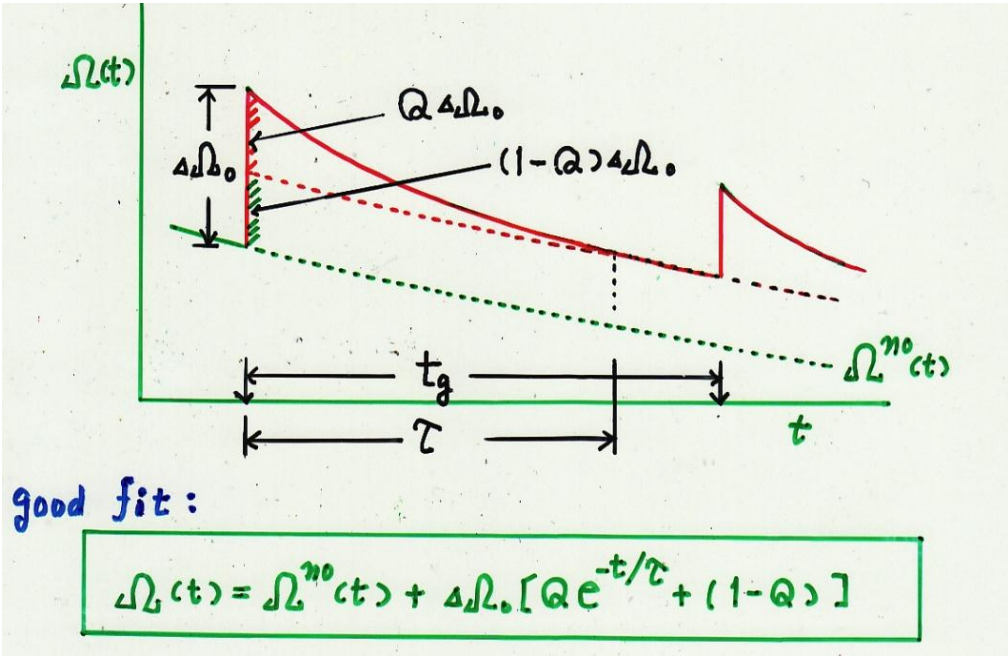 Ω(t)
QΔΩ₀
ΔΩ₀
(1-Q)ΔΩ₀
Ωⁿᵒ(t)
t_g
t
τ
good fit:
Ω(t) = Ωⁿᵒ(t) + ΔΩ₀[Qe^{-t/τ} + (1-Q)]